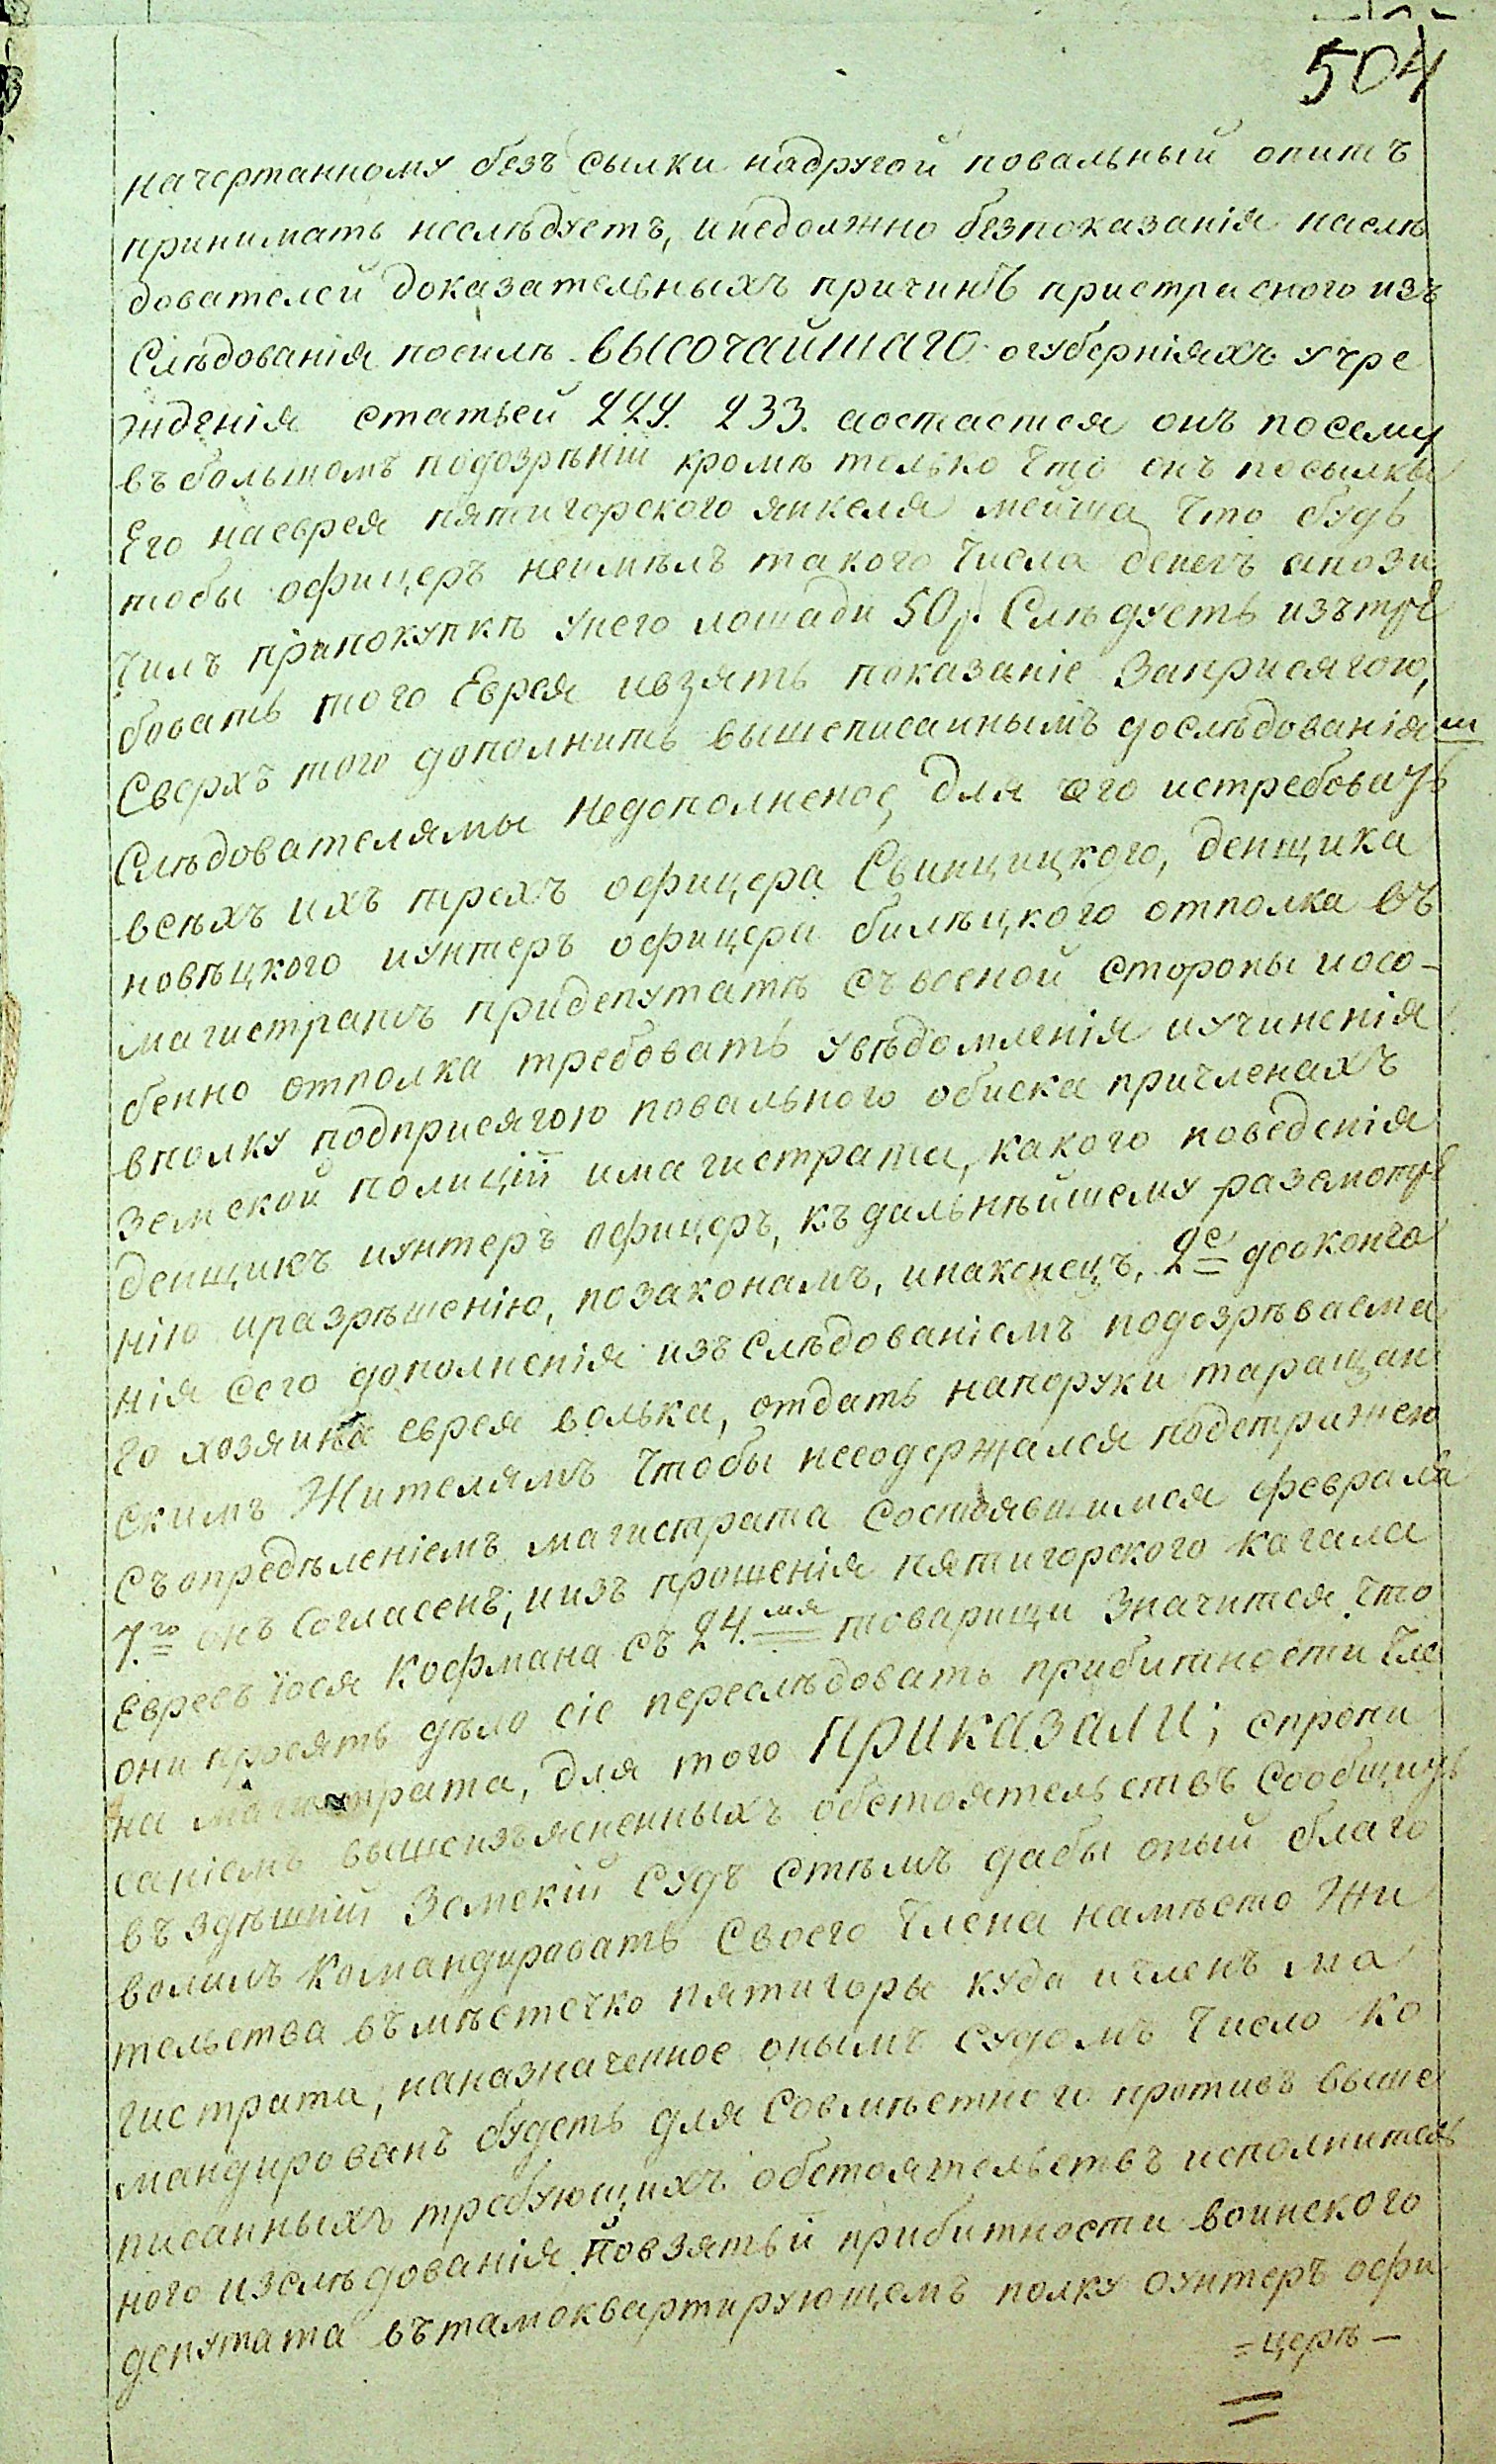 504
начертанному безъ сылки надругой повальный опитъ
принимать неслѣдуетъ, инедолжно безпоказанія наслѣ
дователей доказательныхъ причинъ пристрасного изъ
Слѣдованія посилѣ ВЫСОЧАЙШАГО огуберніяхъ учре
жденія статьей 229. 233. аостается онъ посему
въ большомъ подозрѣніи кромѣ только что онъ посылкы
Его наеврея пятигорского янкеля мейша что будь
тобы офицеръ неимѣлъ такого числа денегъ апози
чилъ припокупкѣ унего лошади 50 р. Слѣдуетъ изътре
бовать того Еврея ивзять показаніе Заприсягою,
Сверхъ того дополнить вышеписаннымъ дослѣдованіям
Слѣдователямы недополненое, для чего истребовать
всѣхъ ихъ трехъ офицера Свинцицкого, денщика
новѣцкого иунтеръ офицера билѣцкого отполка въ
магистратъ придепутатѣ съ военой стороны иосо-
бенно отполка требовать увѣдомленія иучиненія
вполку подприсягою повального обиска причленахъ
земской полиціи имагистрата, какого поведенія
денщикъ иунтеръ офицеръ, къ дальнѣйшему разсмотре
нію иразрѣшенію, позаконамъ, инаконецъ, 2е дооконча
нія сего дополненія изъслѣдованіемъ подозрѣваема
го хозяина еврея волька, отдать напоруки таращан
скимъ Жителямъ чтобы несодержался подстражею
Съопредѣленіемъ магистрата состоявшимся февраля
7.го онъ Согласенъ; иизъ прошенія пятигорского кагала
Евреевъ іося Кофмана съ 24.мя товарищи значится что
они просятъ дѣло сіе переслѣдовать прибитности чле
на магистрата, для того ПРИКАЗАЛИ; спропи
саніемъ вышеизъясненныхъ обстоятельствъ Сообщить
въ здѣшній Земскій судъ стѣмъ дабы оный благо
волилъ Командировать Своего Члена намѣсто Жи
тельства въмѣстечко пятигоры куда ичленъ ма
гистрата, наназначенное онымъ судомъ число Ко
мандированъ будетъ для Совмѣстного противъ выше
писанныхъ требующихъ обстоятельствъ исполнитель
ного изслѣдованія повзятьи прибитности воинского
депутата въ тамоквартирующемъ полку оунтеръ офи
=церѣ—